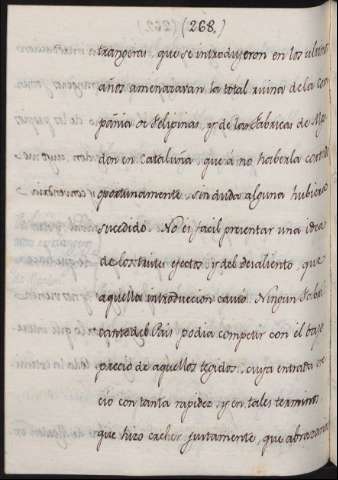 (268.)
trangeras, que se introdujeron en los ultimos
años amenazavan la total ruina de la Com
pañia de Filipinas, y de las Fabricas de Algo
don en Cataluña, que á no haberla cortado
oportunamente, sin duda alguna hubiera
sucedido. No es facil presentar una idea
de los tristes efectos, y del desaliento, que
aquella introduccion causó. Ningun Fabri
cante del Pais podia competir con el bajo
precio de aquellos tegidos, cuya entrada cre
ció con tanta rapidez, y en tales terminos,
que hizo creher justamente, que abrazaria